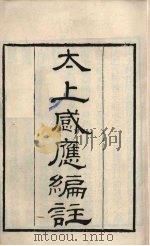 太上感應編註
mtoou.info